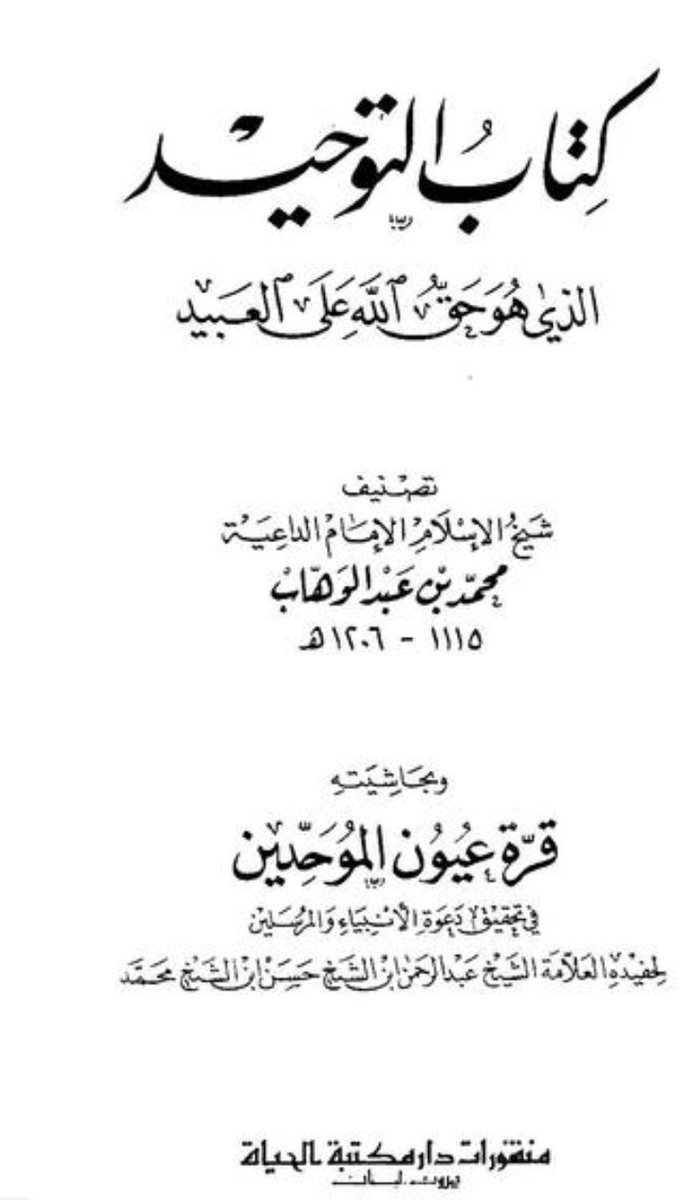 كِتَابُ التَّوْحِيد
الَّذِي هُوَ حَقُّ ٱللَّهِ عَلَى ٱلعَبِيدِ
تصنيف
شَيْخُ الإِسْلَامِ الإِمَام الداعِيَة
محمّد بْن عَبْد الوَهّاب
١١١٥ - ١٢٠٦ هـ
وبحَاشِيَتِهِ
قرّة عُيُون المُوَحِّدِين
في تحقيق دَعوَة الأنبيَاءِ وَالمرسَلين
لحفيدهِ العَلّامَة الشَيْخ عَبدالرحمن ابن الشَيْخ حَسَن ابن الشَيْخ محَمَّد
منشورات دار مكتبة الحياة
بيروت . لبنان